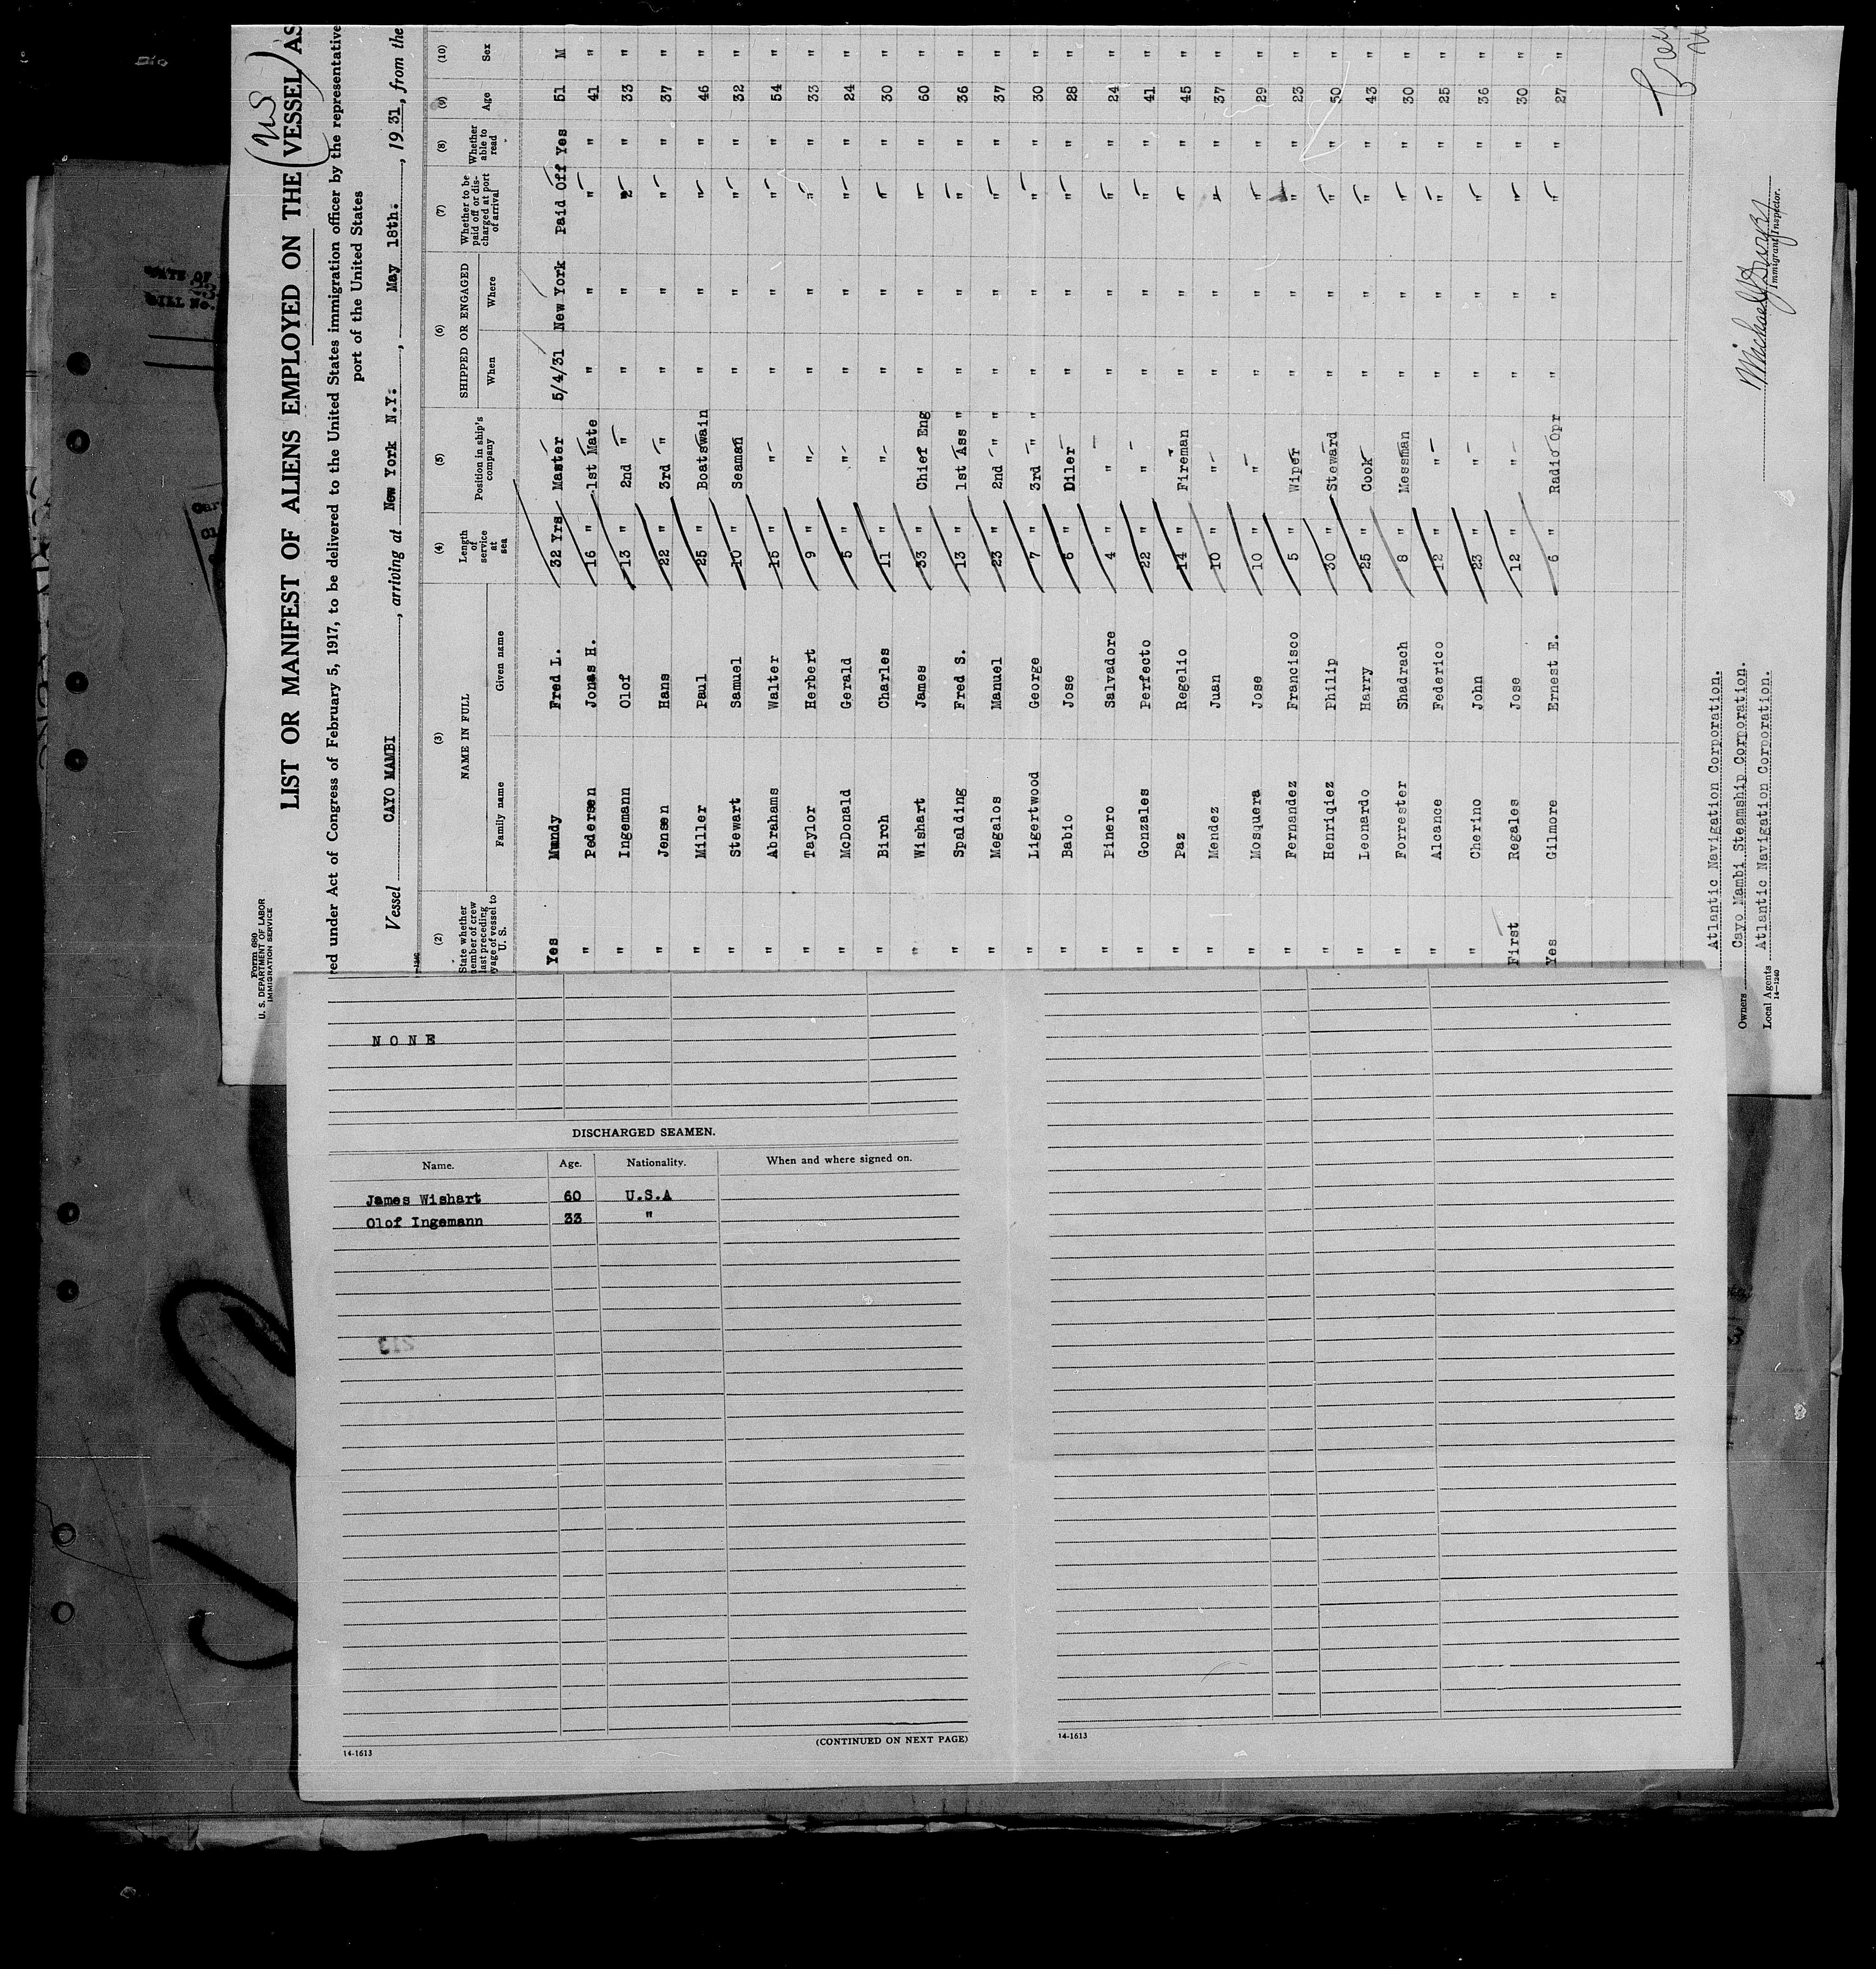 Form 680
U. S. DEPARTMENT OF LABOR
IMMIGRATION SERVICE
LIST OR MANIFEST OF ALIENS EMPLOYED ON THE VESSEL AS
red under Act of Congress of February 5, 1917, to be delivered to the United States immigration officer by the representative
port of the United States
Vessel CAYO MAMBI, arriving at New York N.Y., May 18th., 1931, from the
(2) (3) (4) (5) (6) (7) (8) (9) (10)
State whether member of crew last preceding voyage of vessel to U. S. NAME IN FULL Family name Given name Length of service at sea Position in ship's company SHIPPED OR ENGAGED When Where Whether to be paid off or discharged at port of arrival Whether able to read Age Sex
Yes Mundy Fred L. 32 Yrs Master 5/4/31 New York Paid Off Yes 51 M
" Pedersen Jonas H. 16 " 1st Mate " " " " 41 "
" Ingemann Olof 13 " 2nd " " " " " 33 "
" Jensen Hans 22 " 3rd " " " " " 37 "
" Miller Paul 25 " Boatswain " " " " 46 "
" Stewart Samuel 10 " Seaman " " " " 32 "
" Abrahams Walter 15 " " " " " " 54 "
" Taylor Herbert 9 " " " " " " 33 "
" McDonald Gerald 5 " " " " " " 24 "
" Birch Charles 11 " " " " " " 30 "
" Wishart James 33 " Chief Eng " " " " 60 "
" Spalding Fred S. 13 " 1st Ass " " " " " 36 "
" Megalos Manuel 23 " 2nd " " " " " " 37 "
" Ligertwood George 7 " 3rd " " " " " " 30 "
" Babio Jose 6 " Oiler " " " " 28 "
" Pinero Salvadore 4 " " " " " " 24 "
" Gonzales Perfecto 22 " " " " " " 41 "
" Paz Regelio 14 " Fireman " " " " 45 "
" Mendez Juan 10 " " " " " " 37 "
" Mosquera Jose 10 " " " " " " 29 "
" Fernandez Francisco 5 " Wiper " " " " 23 "
" Henriqiez Philip 30 " Steward " " " " 50 "
" Leonardo Harry 25 " Cook " " " " 43 "
" Forrester Shadrach 8 " Messman " " " " 30 "
" Alcance Federico 12 " " " " " " 25 "
" Cherino John 23 " " " " " " 36 "
First Regales Jose 12 " " " " " " 30 "
Yes Gilmore Ernest E. 6 " Radio Opr " " " " 27 "
Atlantic Navigation Corporation.
Owners Cayo Mambi Steamship Corporation.
Local Agents Atlantic Navigation Corporation.
14-1240
Immigrant Inspector.
NONE
DISCHARGED SEAMEN.
Name. Age. Nationality. When and where signed on.
James Wishart 60 U.S.A
Olof Ingemann 33 "
213
(CONTINUED ON NEXT PAGE)
14-1613
14-1613